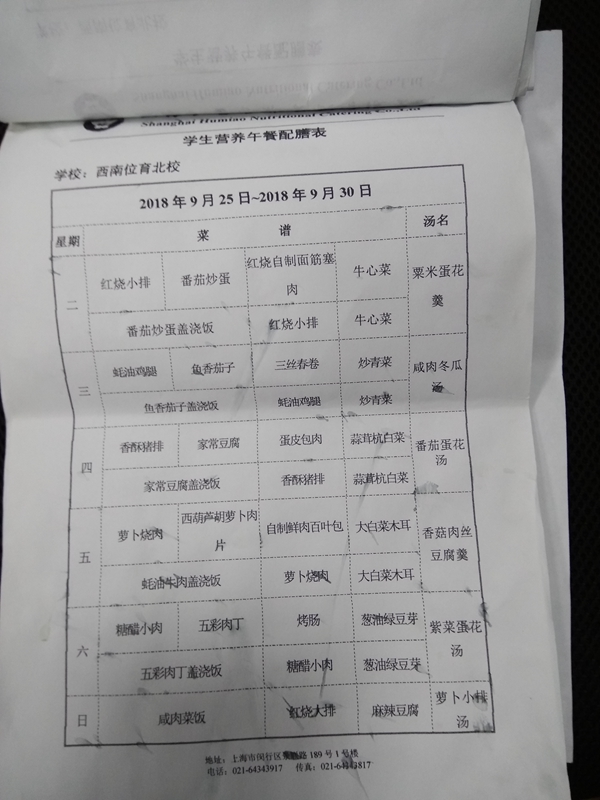 Shanghai Humiao Nutritional Catering Co.,Ltd
学生营养午餐配膳表
学校：西南位育北校
2018年9月25日~2018年9月30日
星期 菜 谱 汤名
二 红烧小排 番茄炒蛋 红烧自制面筋塞肉 牛心菜 粟米蛋花羹
番茄炒蛋盖浇饭 红烧小排 牛心菜
三 蚝油鸡腿 鱼香茄子 三丝春卷 炒青菜 咸肉冬瓜汤
鱼香茄子盖浇饭 蚝油鸡腿 炒青菜
四 香酥猪排 家常豆腐 蛋皮包肉 蒜茸杭白菜 番茄蛋花汤
家常豆腐盖浇饭 香酥猪排 蒜茸杭白菜
五 萝卜烧肉 西葫芦胡萝卜肉片 自制鲜肉百叶包 大白菜木耳 香菇肉丝豆腐羹
蚝油牛肉盖浇饭 萝卜烧肉 大白菜木耳
六 糖醋小肉 五彩肉丁 烤肠 葱油绿豆芽 紫菜蛋花汤
五彩肉丁盖浇饭 糖醋小肉 葱油绿豆芽
日 咸肉菜饭 红烧大排 麻辣豆腐 萝卜小排汤
地址：上海市闵行区 路189号1号楼
电话：021-64343917 传真：021-64343817